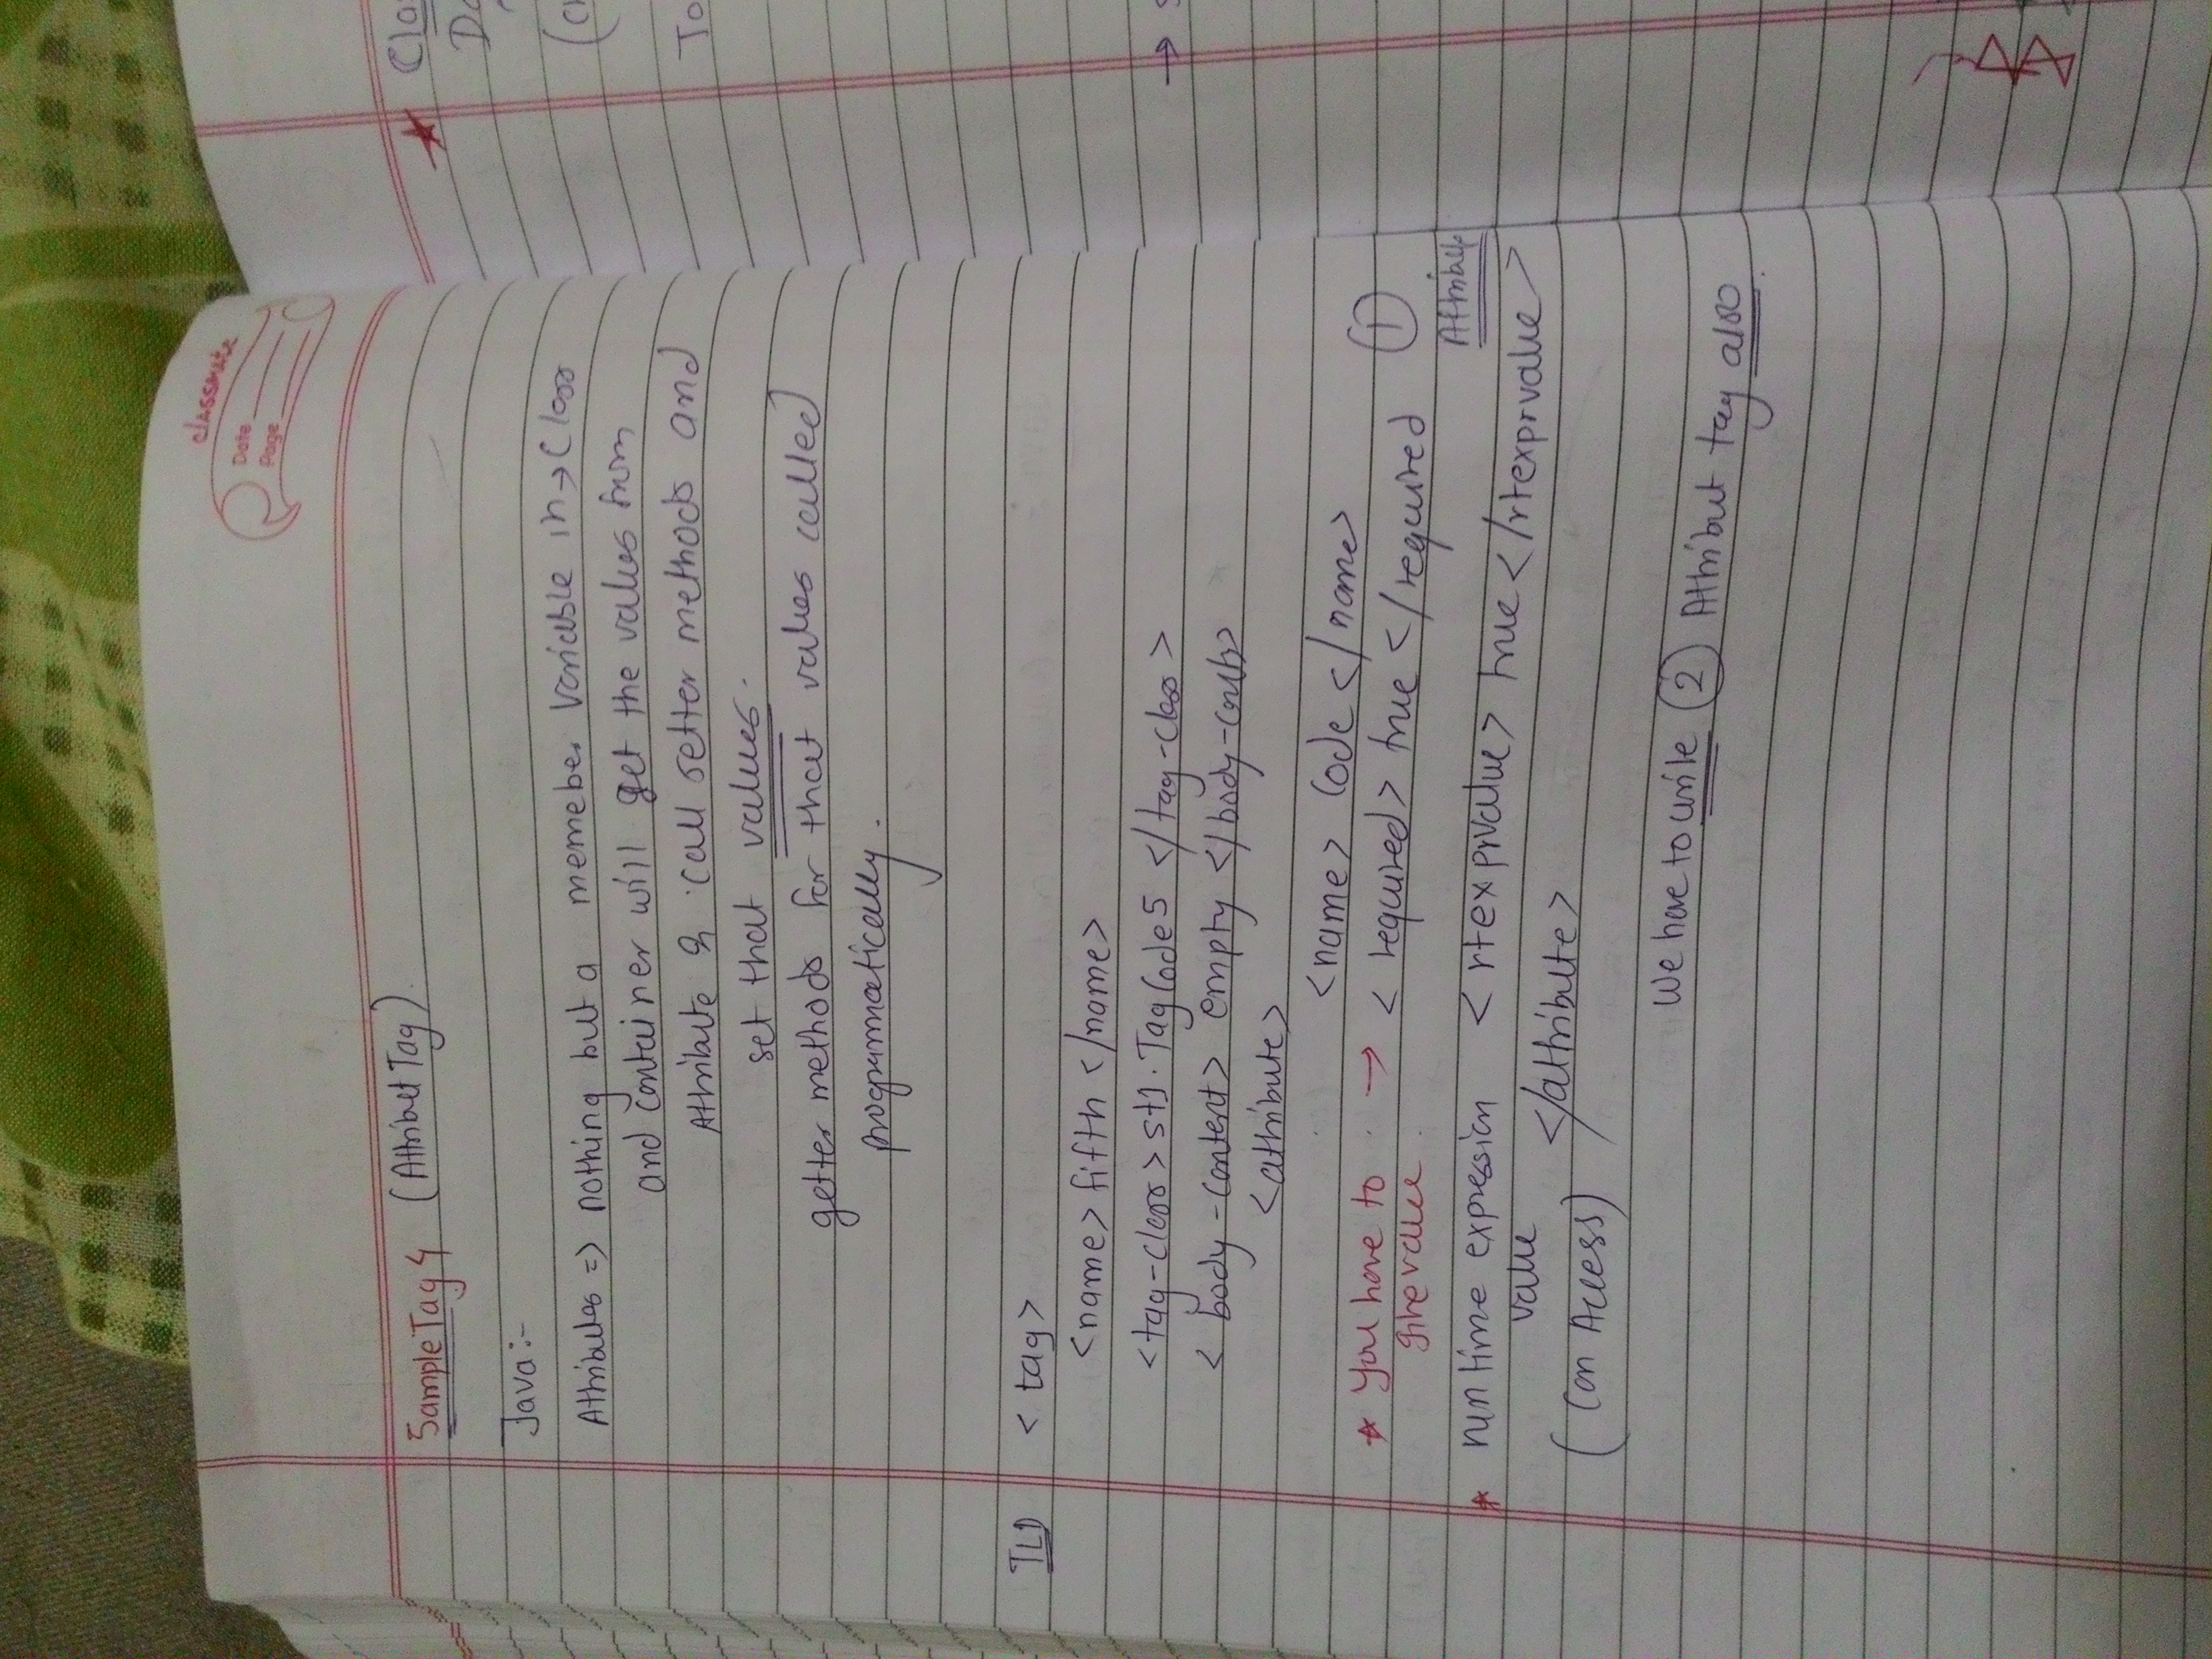 classmate
Date
Page
SampleTag 4 (Attribut Tag).
Java:-
Attributes => nothing but a memeber Variable in → Class
and container will get the values from
Attribute & call setter methods and
set that values.
getter methods for that values called
programmatically.
TLD < tag>
<name> fifth </name>
<tag-class> st1.TagCode5 </tag-class>
< body-content> empty </body-cont>
<attribute>
<name> Code </name>
* You have to → < required> true </required 1
give value
Attribute
* run time expression <rtexprvalue> true </rtexprvalue>
value
(Can Access) </attribute>
We have to write 2 Attribut tag also.
Cla
Do
(c
To
→ s